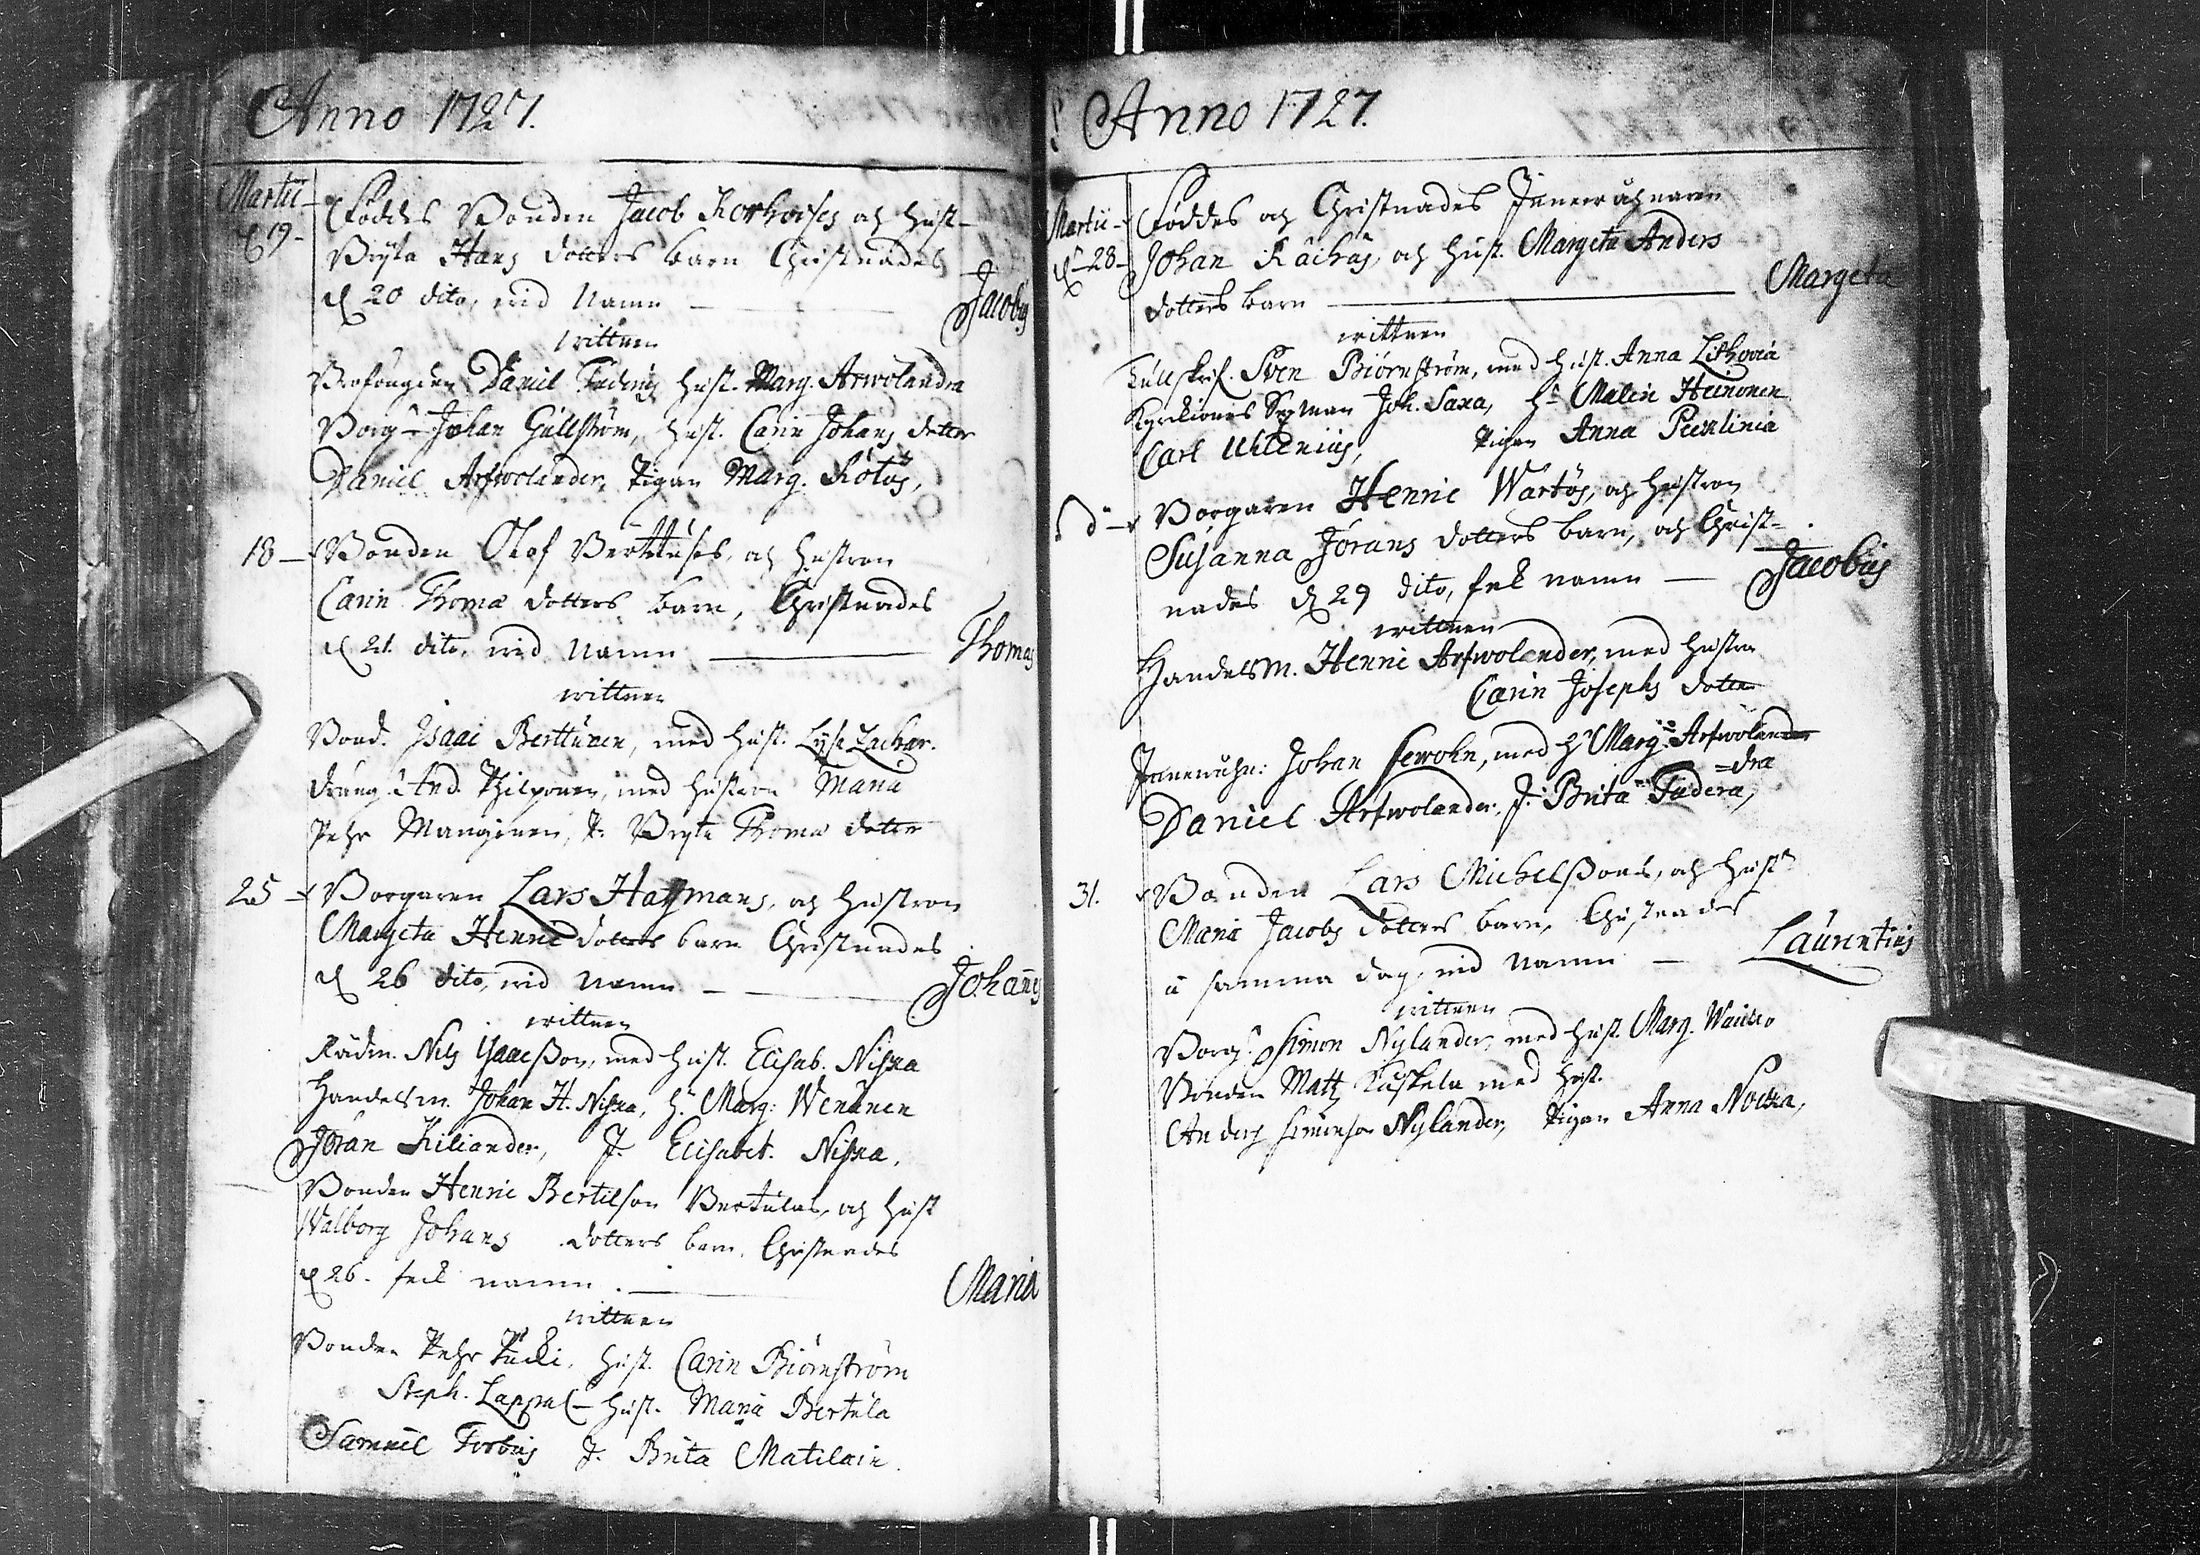 Anno 1727.
Martii
d 19 Föddes Bonden Jacob Korhoises och Hust
Bryta Hans dotters barn Christnades
d 20 dito, wid Namn Jacobus
wittnen
Daniel Hust. Marg. Arwolandra
Borg. Johan Gullström, Hust. Carin Johans dotter
Daniel Arfwolander, Pigan Marg.
18 Bonden Olof och Hustron
Carin Thomæ dotters barn, Christnades
d 21. dito, wid Namn Thomas
wittnen
Bond. Isaac Berttunen, med Hust. Lysk. Zachar.
dräng. And. Philponen, med Hustron Maria
Pehr Manginen, P. Bryta Thomæ dotter
25 Borgaren Lars Haymans, och Hustron
Margeta Henric dotters barn Christnades
d 26 dito, wid Namn Johannes
wittnen
Rådm. Nils Isaacßon, med Hust. Elisab. Niska
Handelsm. Johan H. Niska, H. Marg: Wenänen
Jöran Kiliander, J. Elisabet. Niska.
Bonden Henric Bertilson Bertulas, och Hust
Walborg Johans dotters barn, Christnades
d 26. feck namn Maria
wittnen
Bonden Pehr Pucki, Hust. Carin Biörnström
Steph. Hust. Maria Bertula
Samuel Forbus J. Brita Matilain.
Anno 1727.
Martii
d 28 Föddes och Christnades
Johan och Hust. Margeta Anders
dotters barn Margeta
wittnen
Tullskrif. Sven Biörnström, med Hust. Anna Lithovia
Joh. Saxa, H. Malin Heinonen
Carl Uhlenius, Pigan Anna
d Borgaren Henric Wartös, och Hustron
Susanna Jörans dotters barn, och Christ=
nades d 29 dito, fek namn Jacobus
wittnen
Handelsm. Henric Arfwolander, med Hustron
Carin Josephs dotter
Johan med H. Marg. Arfwolander
=dra
Daniel Arfwolander, J. Brita
31. Bonden Lars Michelßons, och Hust
Maria Jacobs dotters barn, Christnades
å samma dag, wid Namn Laurentius
wittnen
Borg. Simon Nylander, med Hust. Marg.
Bonden Matz med Hust.
Anders Simonson Nylander, Pigan Anna